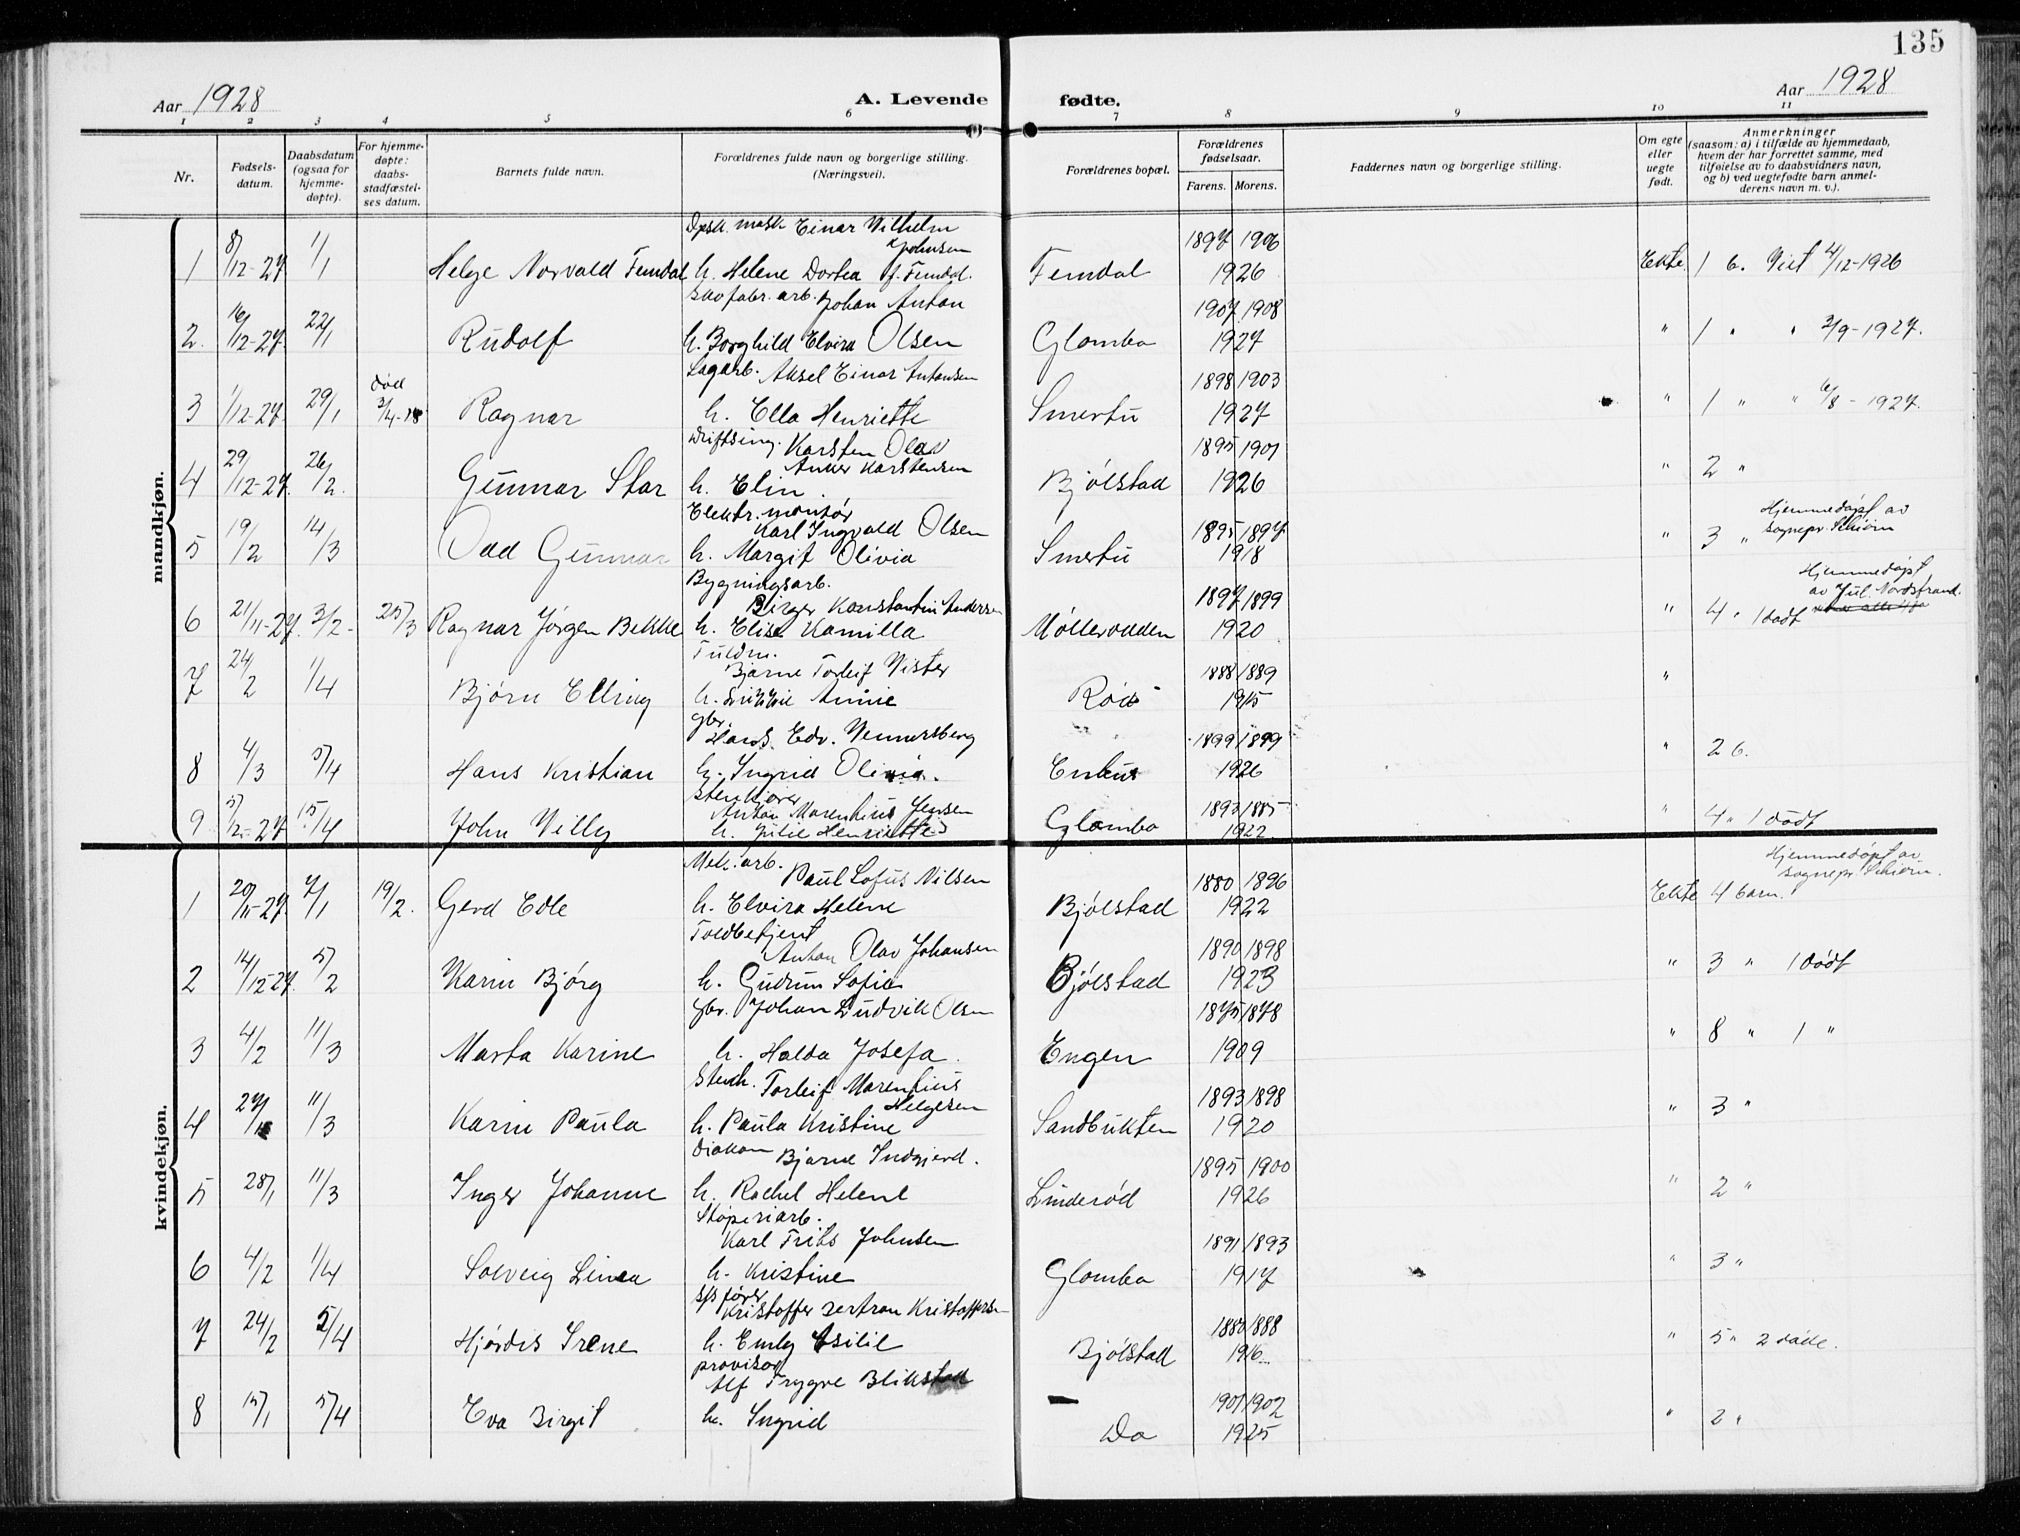 135
Aar 1928
A. Levende fødte.
Aar 1928
1 2 3 4 5 6 7 8 9 10 11
Nr.
Fødsels-
datum.
Daabsdatum
(ogsaa for
hjemme-
døpte).
For hjemme-
døpte:
daabs-
stadfæstel-
ses datum.
Barnets fulde navn.
Forældrenes fulde navn og borgerlige stilling.
(Næringsvei).
Forældrenes bopæl.
Forældrenes
fødselsaar.
Farens. Morens.
Faddernes navn og borgerlige stilling.
Om egte
eller
uegte
født.
Anmerkninger
(saasom: a) i tilfælde av hjemmedaab,
hvem der har forrettet samme, med
tilføielse av to daabsvidners navn,
og b) ved uegtefødte barn anmel-
derens navn m. v.).
mandkjøn.
Einar Vilhelm
Johnsen 1897 1906
1 8/12-27 1/1 Helge Norvald Femdal h. Helene Dortea f. Femdal. Femdal 1926 Ekte 1 b. Viet 4/12-1926
Skofabr. arb. Johan Anton 1907 1908
2. 16/12-27. 22/1 Rudolf h. Borghild Elvira Olsen Glombo 1927 " 1 " " 3/9-1927.
Sagarb. Aksel Einar Antonsen 1898 1903
død
3 1/12-27. 29/1 3/4-28 Ragnar h. Ella Henriette Smertu 1927 " 1 " " 6/8-1927.
Driftsing. Karsten Olav 1895 1901
Anker Karstensen
4 29/12-27. 26/2. Gunnar Star h. Elin. Bjølstad 1926 " 2 "
Elektr. montør
Karl Ingvald Olsen 1895 1897 Hjemmedøpt av
sognepr. Schiørn
5 19/2 14/3 Odd Gunnar h. Margit Olivia Smertu 1918 " 3 "
Bygningsarb.
Birger Konstantin Andersen 1897 1899 Hjemmedøpt
av Jul. Nordstrand.
6 21/11-27. 3/2- 25/3 Ragnar Jørgen Bekke h. Elise Kamilla Møllerodden 1920 " 4 " 1 dødt
Fuldm.
Bjarne Torleif Vister 1888 1889
7 24/2 1/4 Bjørn Elling h. Annie Rød 1915 "
gbr.
Hans Edv. Vennersberg 1899 1899
8 4/3 5/4 Hans Kristian h. Ingrid Olivia. Enhus 1926 " 2 b.
Stenkjører
Anton Marentius Jensen 1893 1885
9. 5/12-27 15/4 John Villy h. Julie Henriette Glombo 1922 " 4 " 1 dødt
kvindekjøn.
Mek. arb. Paul Lofus Nilsen 1880 1896 Hjemmedøpt av
sognepr. Schiørn.
1 20/11-27. 7/1 19/2. Gerd Edle h. Elvira Helene Bjølstad 1922 Ekte 4 barn.
Toldbetjent
Anton Olav Johansen 1890 1898
2 14/12-27. 5/2 Karin Bjørg h. Gudrun Sofie Bjølstad 1923 " 3 " 1 dødt
gbr. Johan Ludvik Olsen 1875 1878
3 4/2 11/3 Marta Karine h. Halda Josefa. Engen 1909 " 8 " 1 "
Stenh. Torleif Marentius 1893 1898
Helgesen
4 11/3 Karin Paula h. Paula Kristine Sandbukten 1920 " 3 "
Diakon Bjarne Indgjerd. 1895 1900
5 28/1 11/3 Inger Johanne h. Rachel Helene Linderød 1926 " 2 "
Støperiarb.
Karl Frits Johnsen 1891 1893
6 4/2 1/4 Solveig Linea h. Kristine Glombo 1917 " 3 "
s/s fører
Kristoffer Kristoffersen 1888
7 24/2 5/4 Hjørdis Irene h. Emly Bjølstad 1916 " 5 " 2 døde.
provisor
Alf Trygve Blikstad 1901 1902
8 15/1 5/4 Eva Birgit h. Ingrid Do 1925 " 2 "